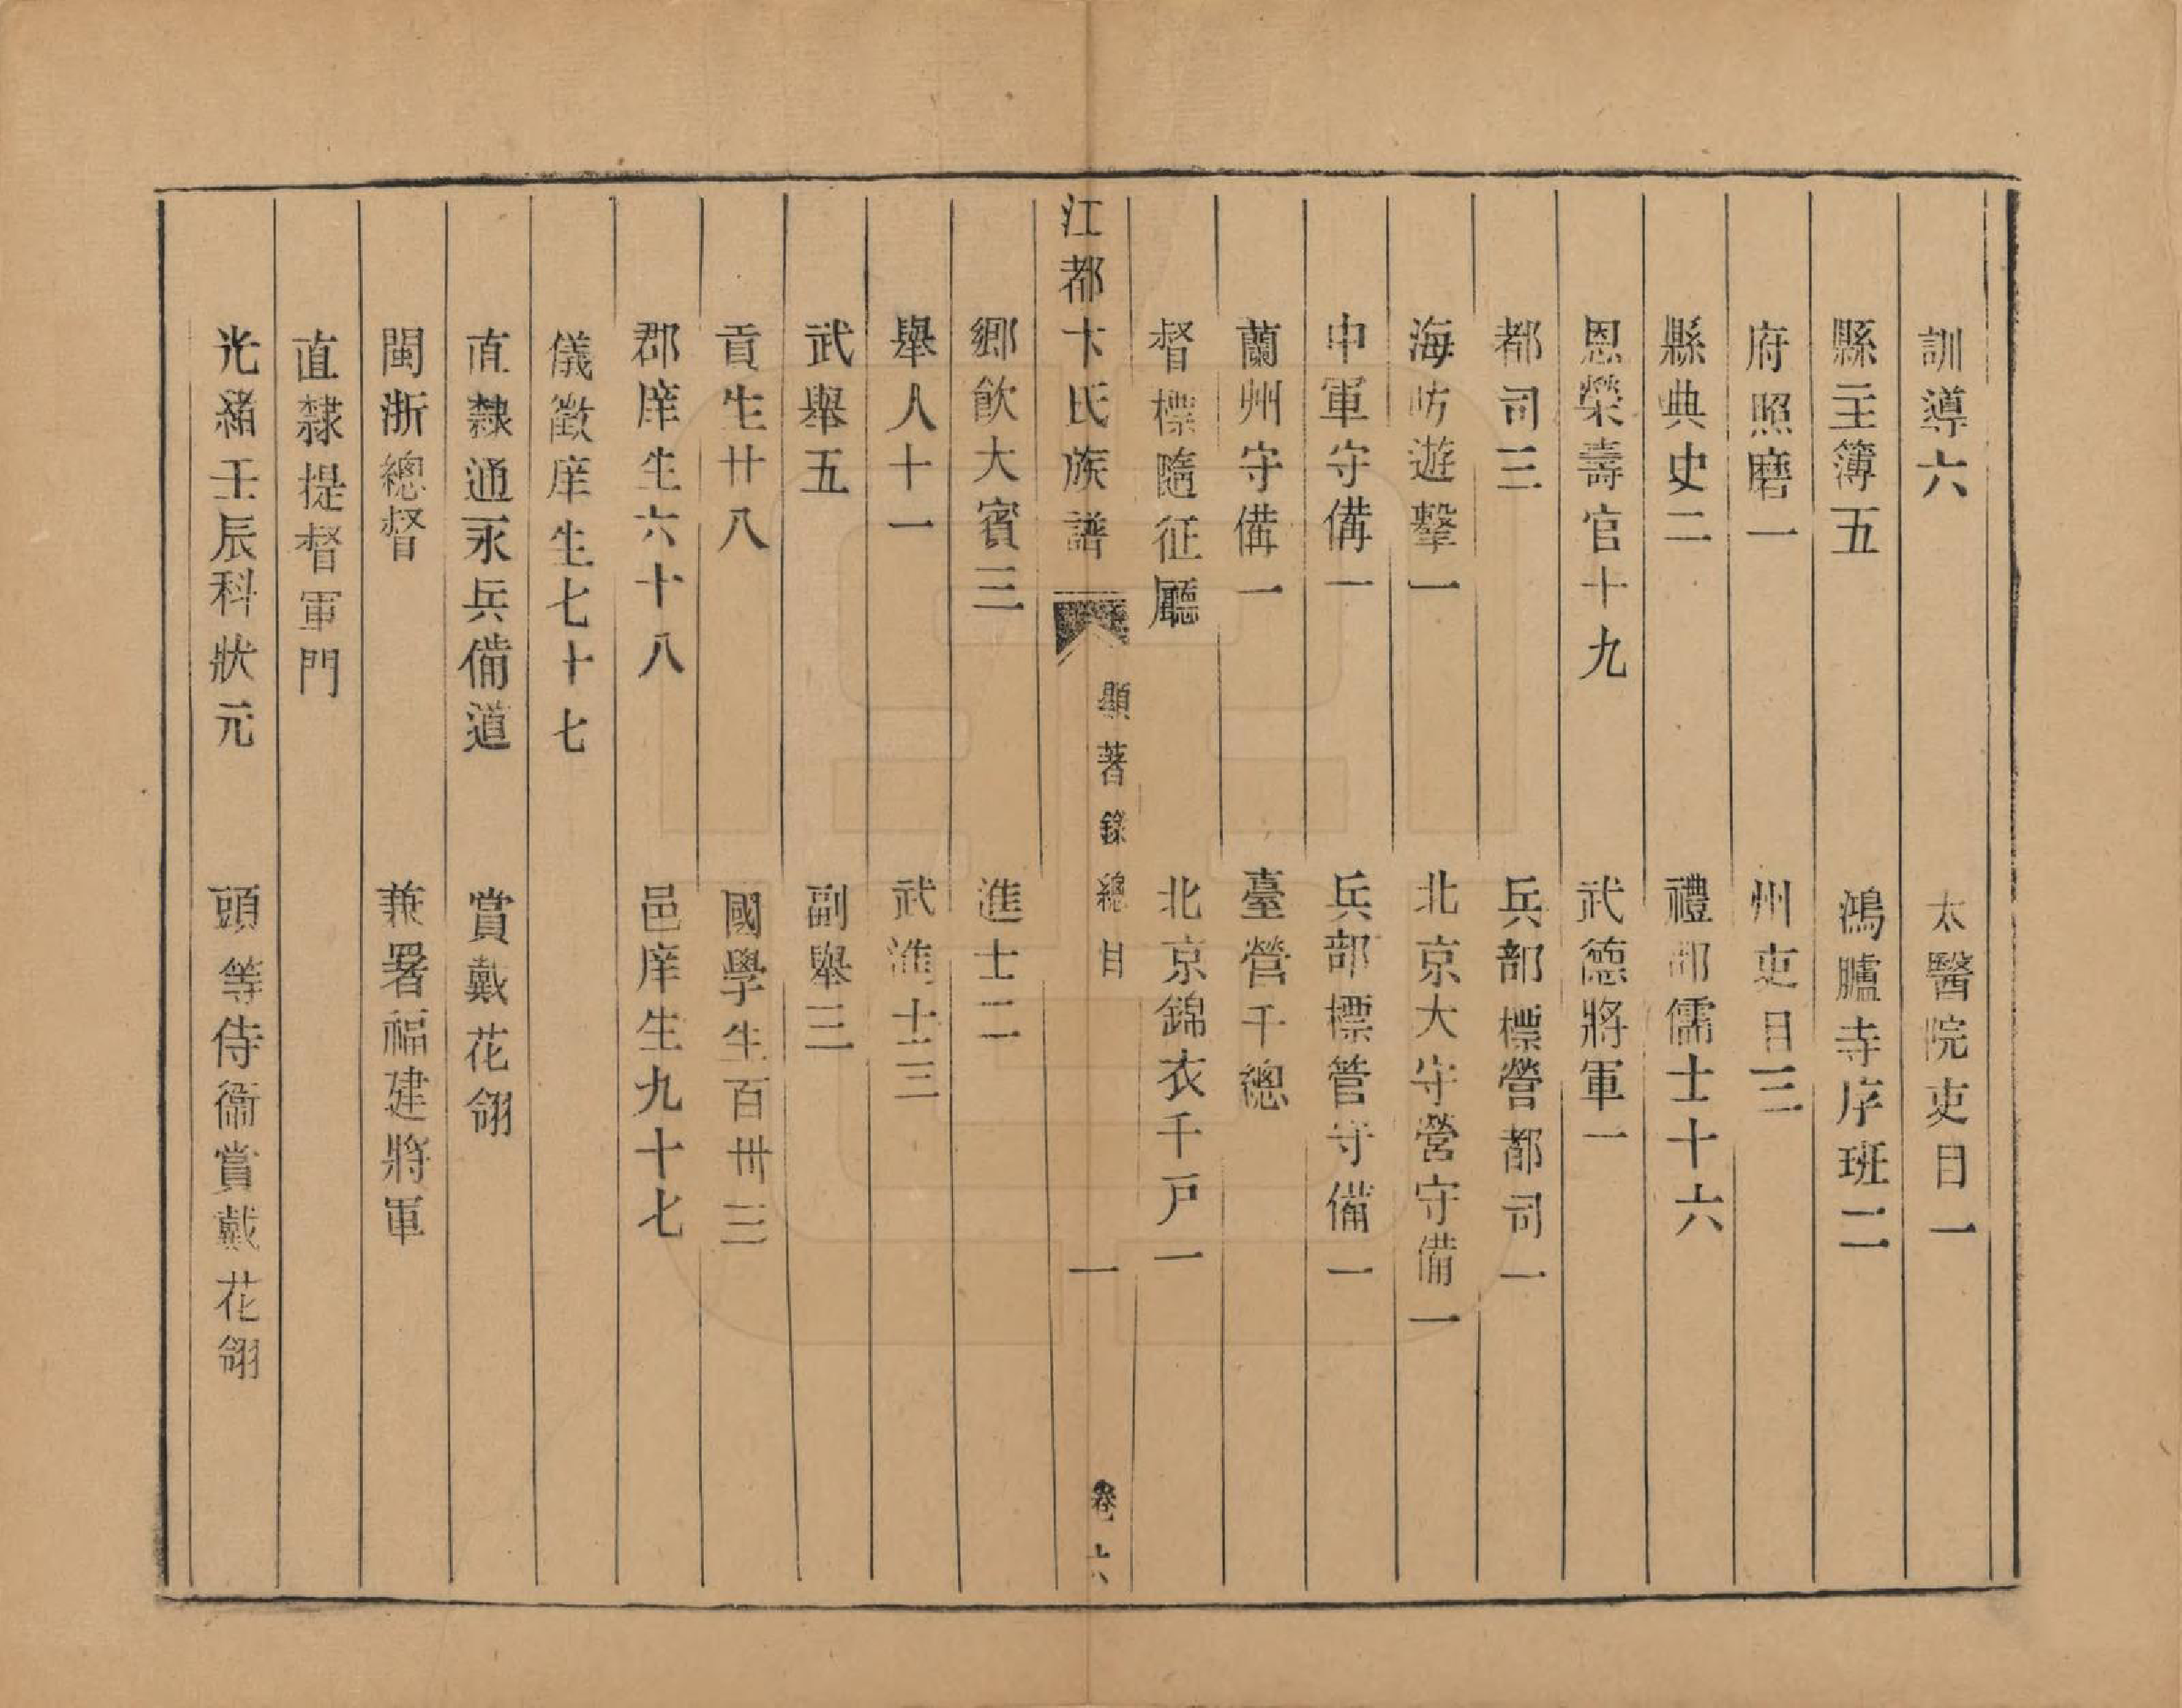 訓導六　太醫院吏目一
縣主簿五　鴻臚寺序班二
府照磨一　州吏目三
縣典史二　禮部儒士十六
恩榮壽官十九　武德將軍一
都司三　兵部標營都司一
海防遊擊一　北京大守營守備一
中軍守備一　兵部標管守備一
蘭州守備一　臺營千總
督標隨征廳　北京錦衣千戸一
江都卞氏族譜　顯著錄總目　一　卷六
鄉飲大賓三　進士二
舉人十一　武進十三
武舉五　副舉三
貢生廿八　國學生百卅三
郡庠生六十八　邑庠生九十七
儀徵庠生七十七
直隸通永兵備道　賞戴花翎
閩浙總督　兼署福建將軍
直隸提督軍門
光緒壬辰科狀元　頭等侍衞賞戴花翎